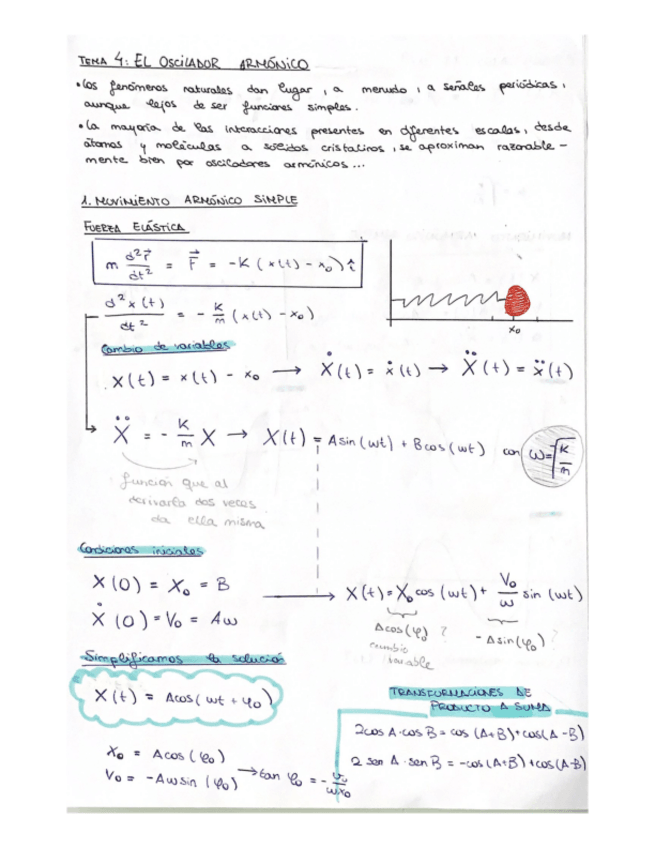 TEMA 4: EL OSCILADOR ARMÓNICO
• Los fenómenos naturales dan lugar, a menudo, a señales periódicas,
aunque lejos de ser funciones simples.
• La mayoría de las interacciones presentes en diferentes escalas, desde
átomos y moléculas a sólidos cristalinos, se aproximan razonable-
mente bien por osciladores armónicos...
1. MOVIMIENTO ARMÓNICO SIMPLE
FUERZA ELÁSTICA
m d²r⃗/dt² = F⃗ = -K (x(t) - x₀) î
d²x(t)/dt² = - K/m (x(t) - x₀)
x₀
Cambio de variables
X(t) = x(t) - x₀ → Ẋ(t) = ẋ(t) → Ẍ(t) = ẍ(t)
Ẍ = - K/m X → X(t) = A sin(ωt) + B cos(ωt) con ω = √(K/m)
función que al
derivarla dos veces
da ella misma
Condiciones iniciales
X(0) = X₀ = B
Ẋ(0) = V₀ = Aω
X(t) = X₀ cos(ωt) + V₀/ω sin(ωt)
A cos(φ₀) ?
cambio
variable
- A sin(φ₀) ?
Simplificamos la solución
X(t) = A cos(ωt + φ₀)
X₀ = A cos(φ₀)
V₀ = -Aω sin(φ₀) → tan φ₀ = - V₀/ωX₀
TRANSFORMACIONES DE
PRODUCTO A SUMA
2cos A · cos B = cos(A+B) + cos(A-B)
2 sen A · sen B = -cos(A+B) + cos(A-B)